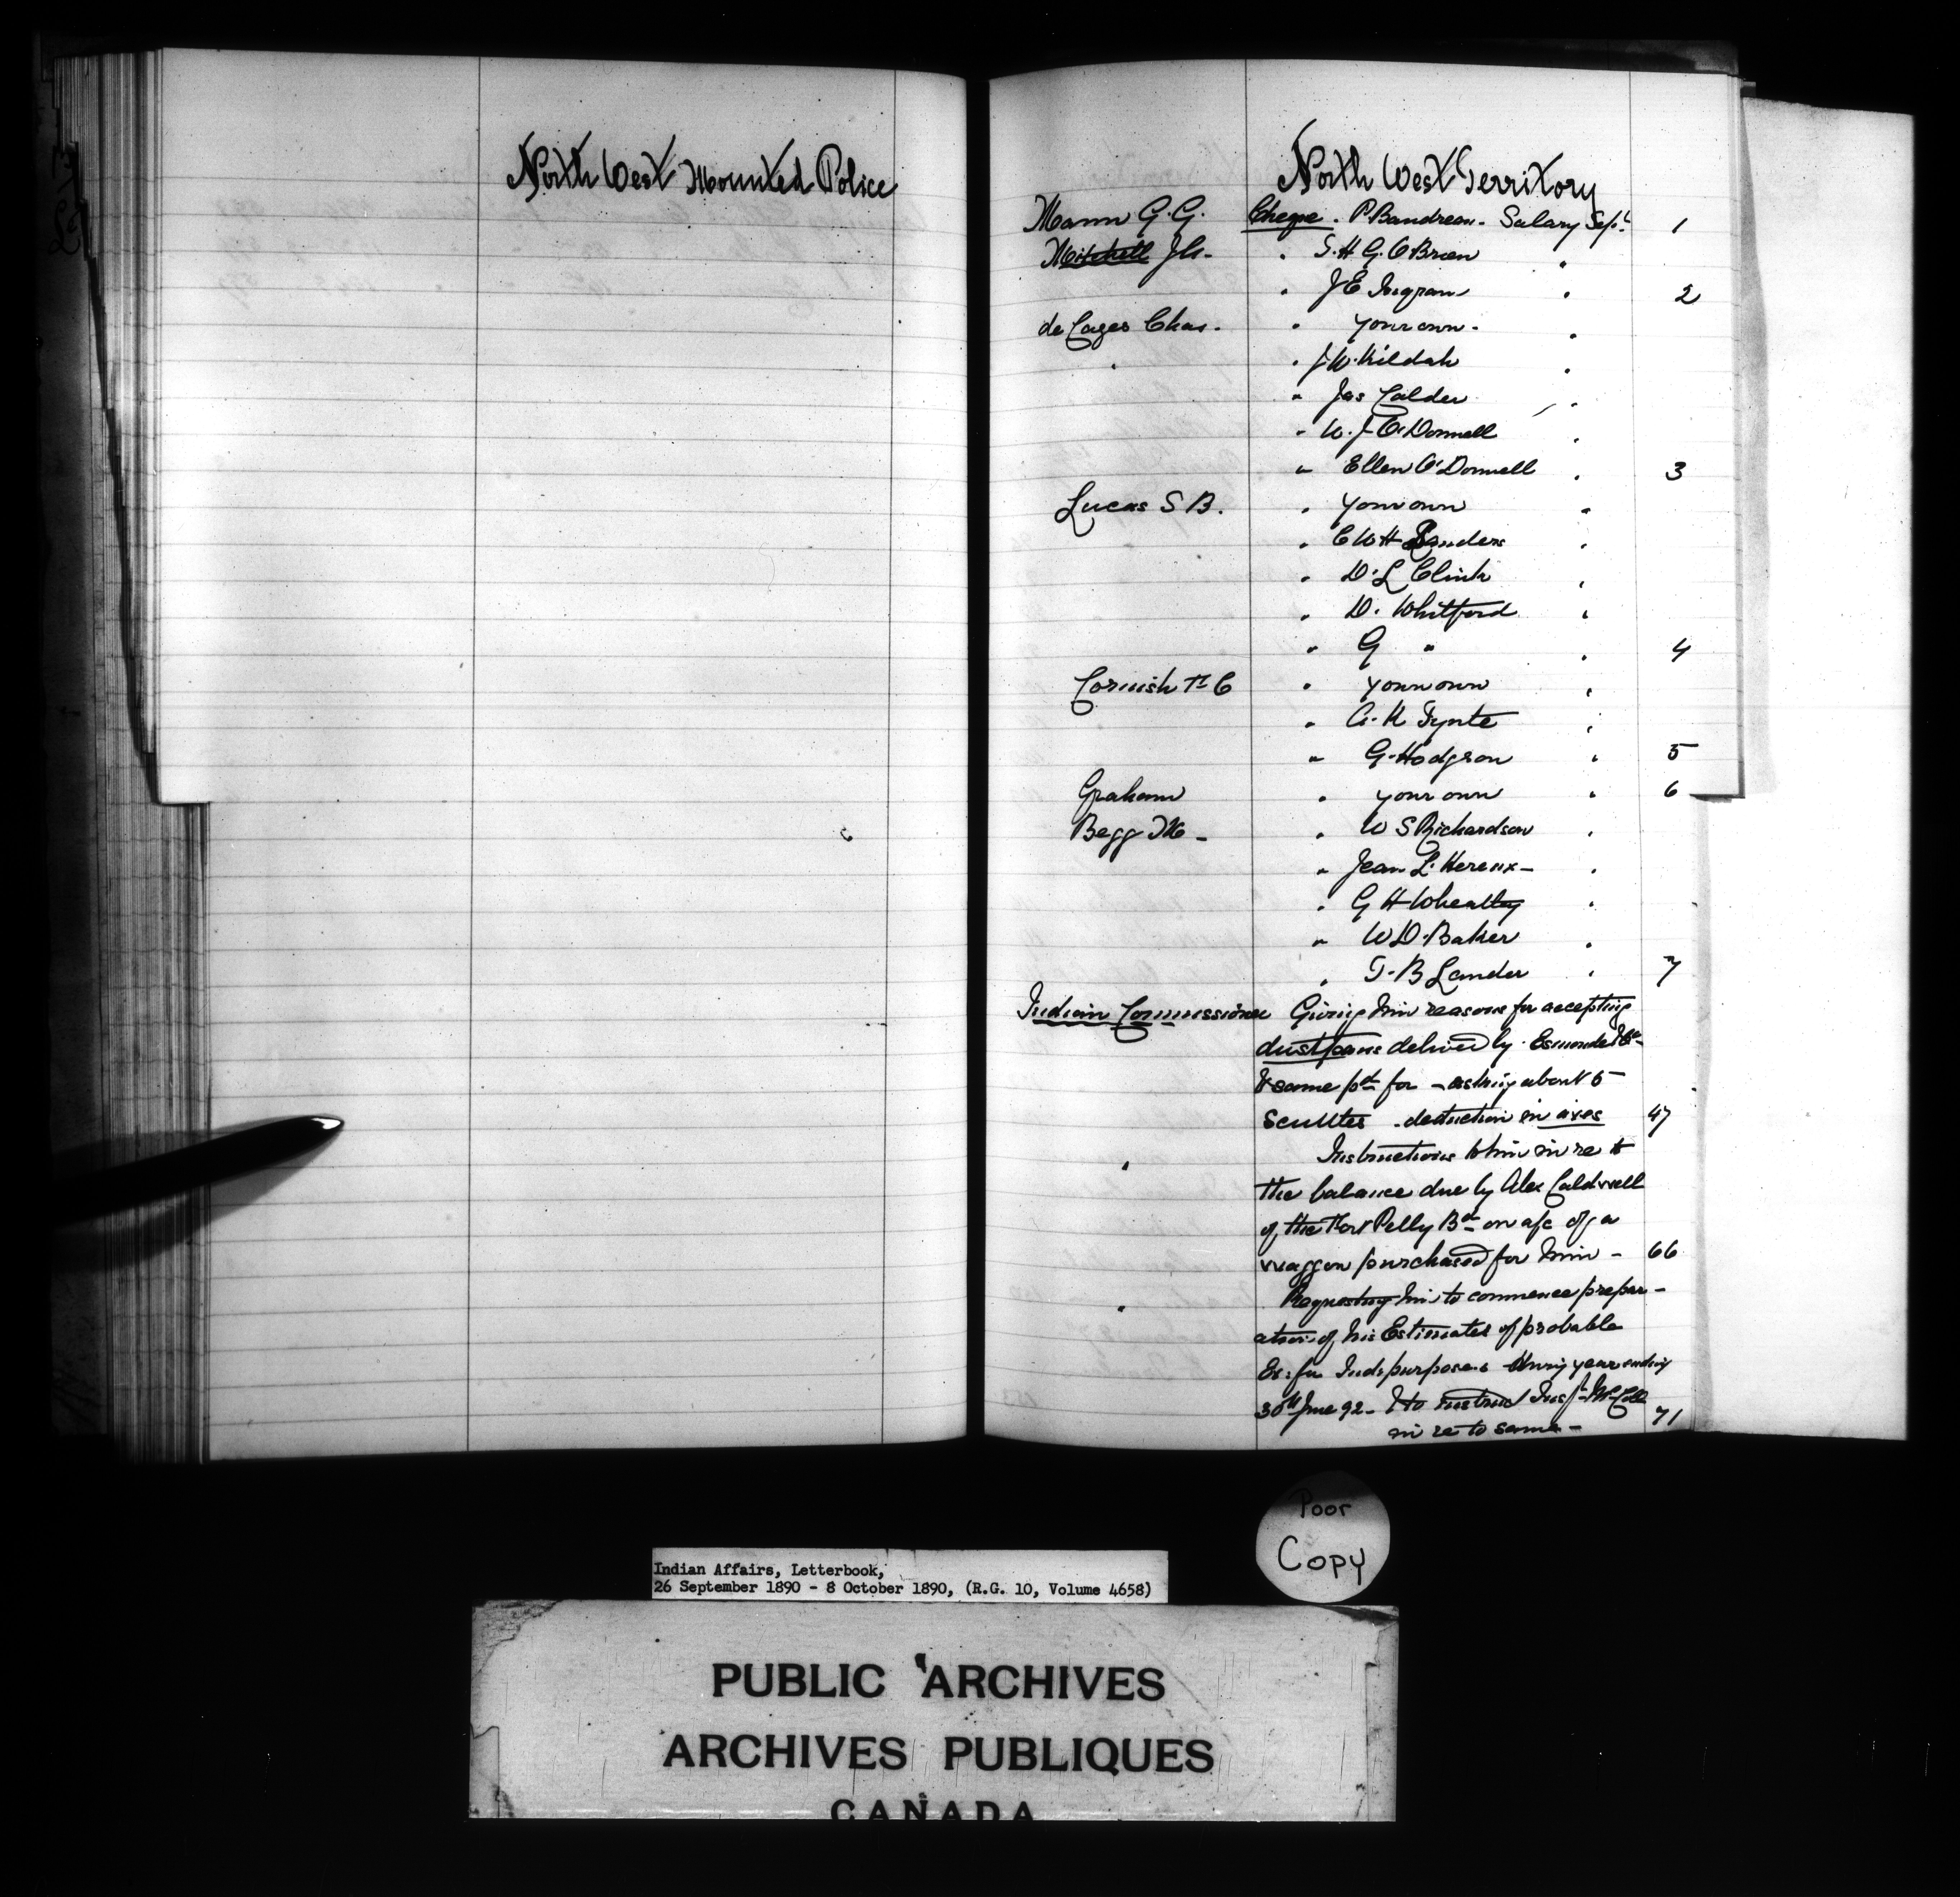 North West Mounted Police
North West Territory
Mann G. G. Cheque . P. Baudreau . Salary Sept. 1
Mitchell Jh - " S. H. G. O'Brien "
" J E Ingram " 2
de Cazes Chas . " your own . "
" " J. W. Kildah "
" Jas Calder "
" W. J. O'Donnell "
" Ellen O'Donnell " 3
Lucas S B . " your own "
" C W H Sanders "
" D. L Clink "
" D. Whitford "
" G " " 4
Cornish F C " your own "
" A. K Tynte "
" G. Hodgson " 5
Graham " your own " 6
Begg M - " W S Richardson "
" Jean L. Hereux - "
" G H Wheatley "
" W D. Baker "
" T. B Lander " 7
Indian Commissioner Giving him reasons for accepting
dustpans delived by Esmonde
& same pd for - asking about 5
Scuttles . deduction in axes 47
" Instructions to him in re to
the balance due by Alex Caldwell
of the Fort Pelly Bd on a/c of a
waggon purchased for him - 66
" Requesting him to commence prepar-
ation of his Estimates of probable
Ex: for Inds purposes during year ending
30th June 92 - & to instruct Inspt. 71
in re to same -
Poor
Copy
Indian Affairs, Letterbook,
26 September 1890 - 8 October 1890, (R.G. 10, Volume 4658)
PUBLIC ARCHIVES
ARCHIVES PUBLIQUES
CANADA